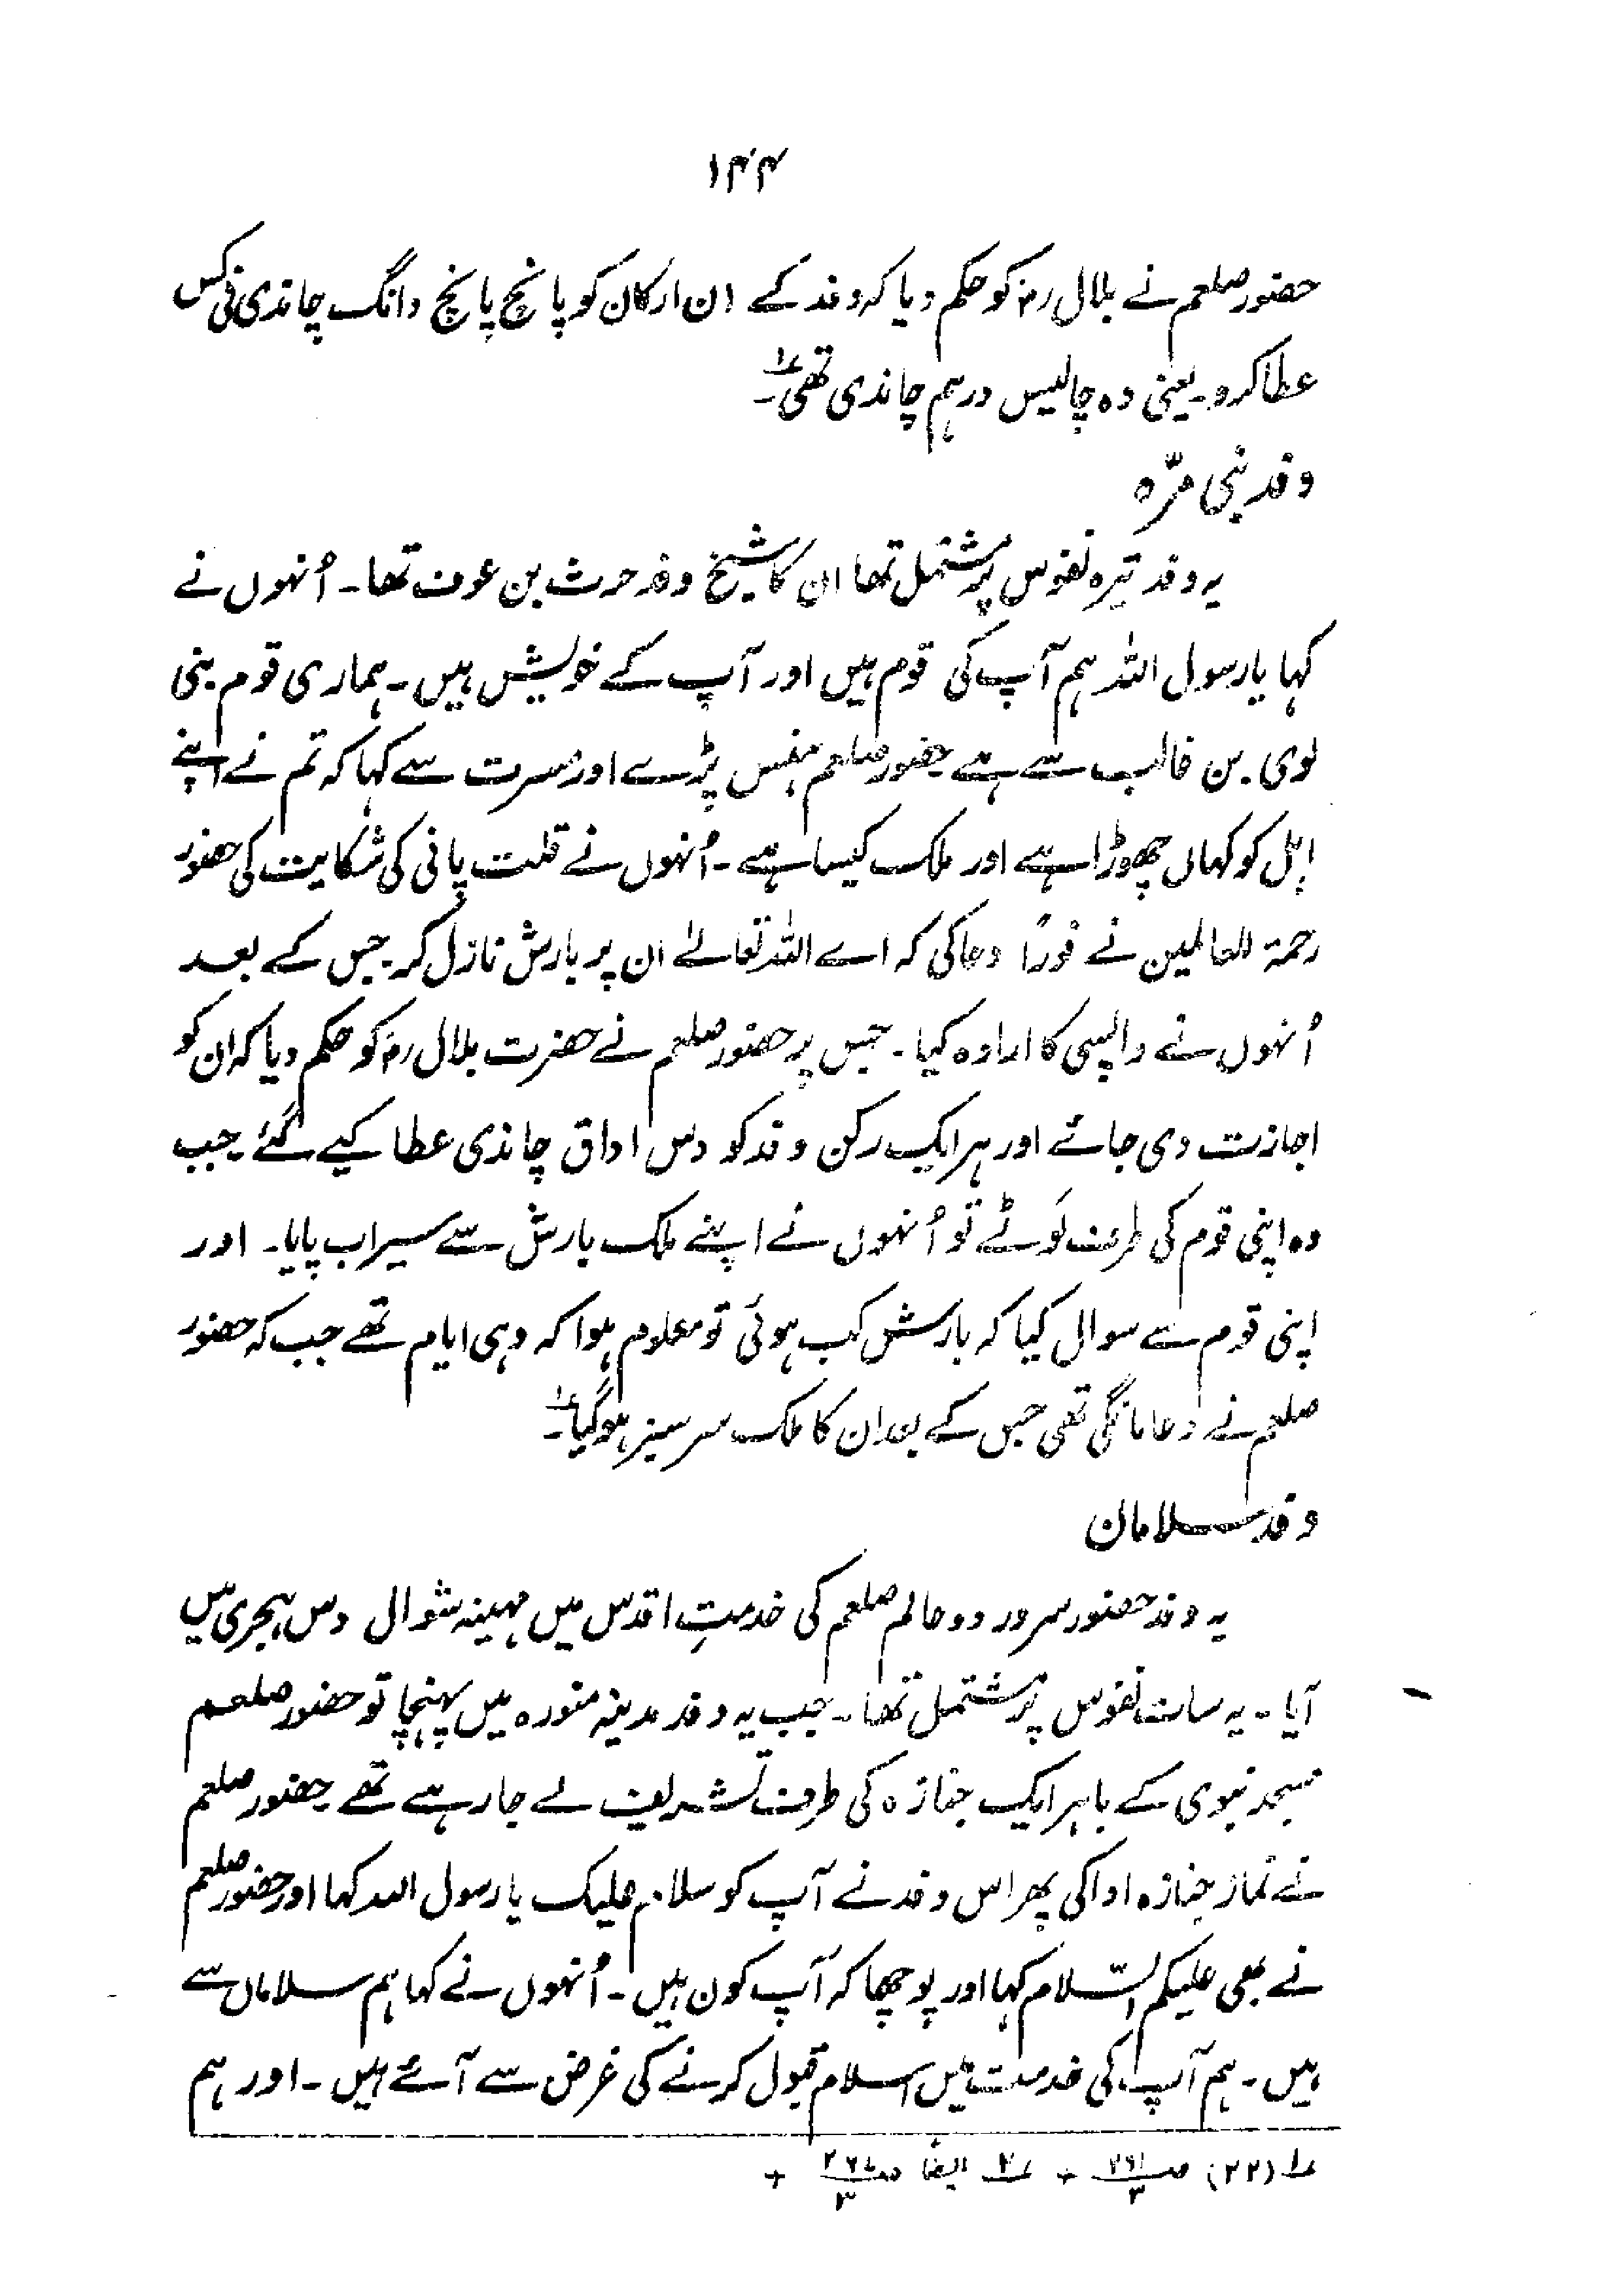 ۱۴۴
حضور صلعم نے بلال رضؓ کو حکم دیا کہ وفد کے ان ارکان کو پانچ پانچ دانگ چاندی فی کس
عطا کرو۔ یعنی وہ چالیس درہم چاندی تھی۔؎۱
وفد بنی مرّہ
یہ وفد تیرہ نفوس پر مشتمل تھا ان کا شیخ وفد حرث بن عوف تھا۔ اُنہوں نے
کہا یا رسول اللہ ہم آپ کی قوم ہیں اور آپ کے خویش ہیں۔ ہماری قوم بنی
لوی بن غالب سے ہے حضور صلعم ہنس پڑے اور مسرت سے کہا کہ تم نے اپنے
اہل کو کہاں چھوڑا ہے اور ملک کیسا ہے۔ اُنہوں نے قلت پانی کی شکایت کی حضور
رحمۃ للعالمین نے فوراً دعا کی کہ اے اللہ تعالےٰ ان پر بارش نازل کر۔ جس کے بعد
اُنہوں نے واپسی کا ارادہ کیا۔ جس پر حضور صلعم نے حضرت بلال رضؓ کو حکم دیا کہ ان کو
اجازت دی جائے اور ہر ایک رکن وفد کو دس اواق چاندی عطا کیے گئے جب
وہ اپنی قوم کی طرف لَوٹے تو اُنہوں نے اپنے ملک بارش سے سیراب پایا۔ اور
اپنی قوم سے سوال کیا کہ بارش کب ہوئی تو معلوم ہوا کہ وہی ایام تھے جب کہ حضور
صلعم نے دعا مانگی تھی جس کے بعد ان کا ملک سرسبز ہو گیا۔
وفد سلامان
یہ وفد حضور سرور دو عالم صلعم کی خدمتِ اقدس میں مہینہ شوال دس ہجری میں
آیا۔ یہ سات نفوس پر مشتمل تھا۔ جب یہ وفد مدینہ منورہ میں پہنچا تو حضور صلعم
مسجد نبوی کے باہر ایک جنازہ کی طرف تشریف لے جا رہے تھے حضور صلعم
نے نماز جنازہ ادا کی پھر اس وفد نے آپ کو سلام علیک یا رسول اللہ کہا اور حضور صلعم
نے بھی علیکم السّلام کہا اور پوچھا کہ آپ کون ہیں۔ اُنہوں نے کہا ہم سلاماں سے
ہیں۔ ہم آپ کی خدمت میں اسلام قبول کرنے کی غرض سے آئے ہیں۔ اور ہم
؎۱ (۲۲) ص ۲۶۱/۳ + ؎۲ ایضاً ص ۲۶۷/۳ +